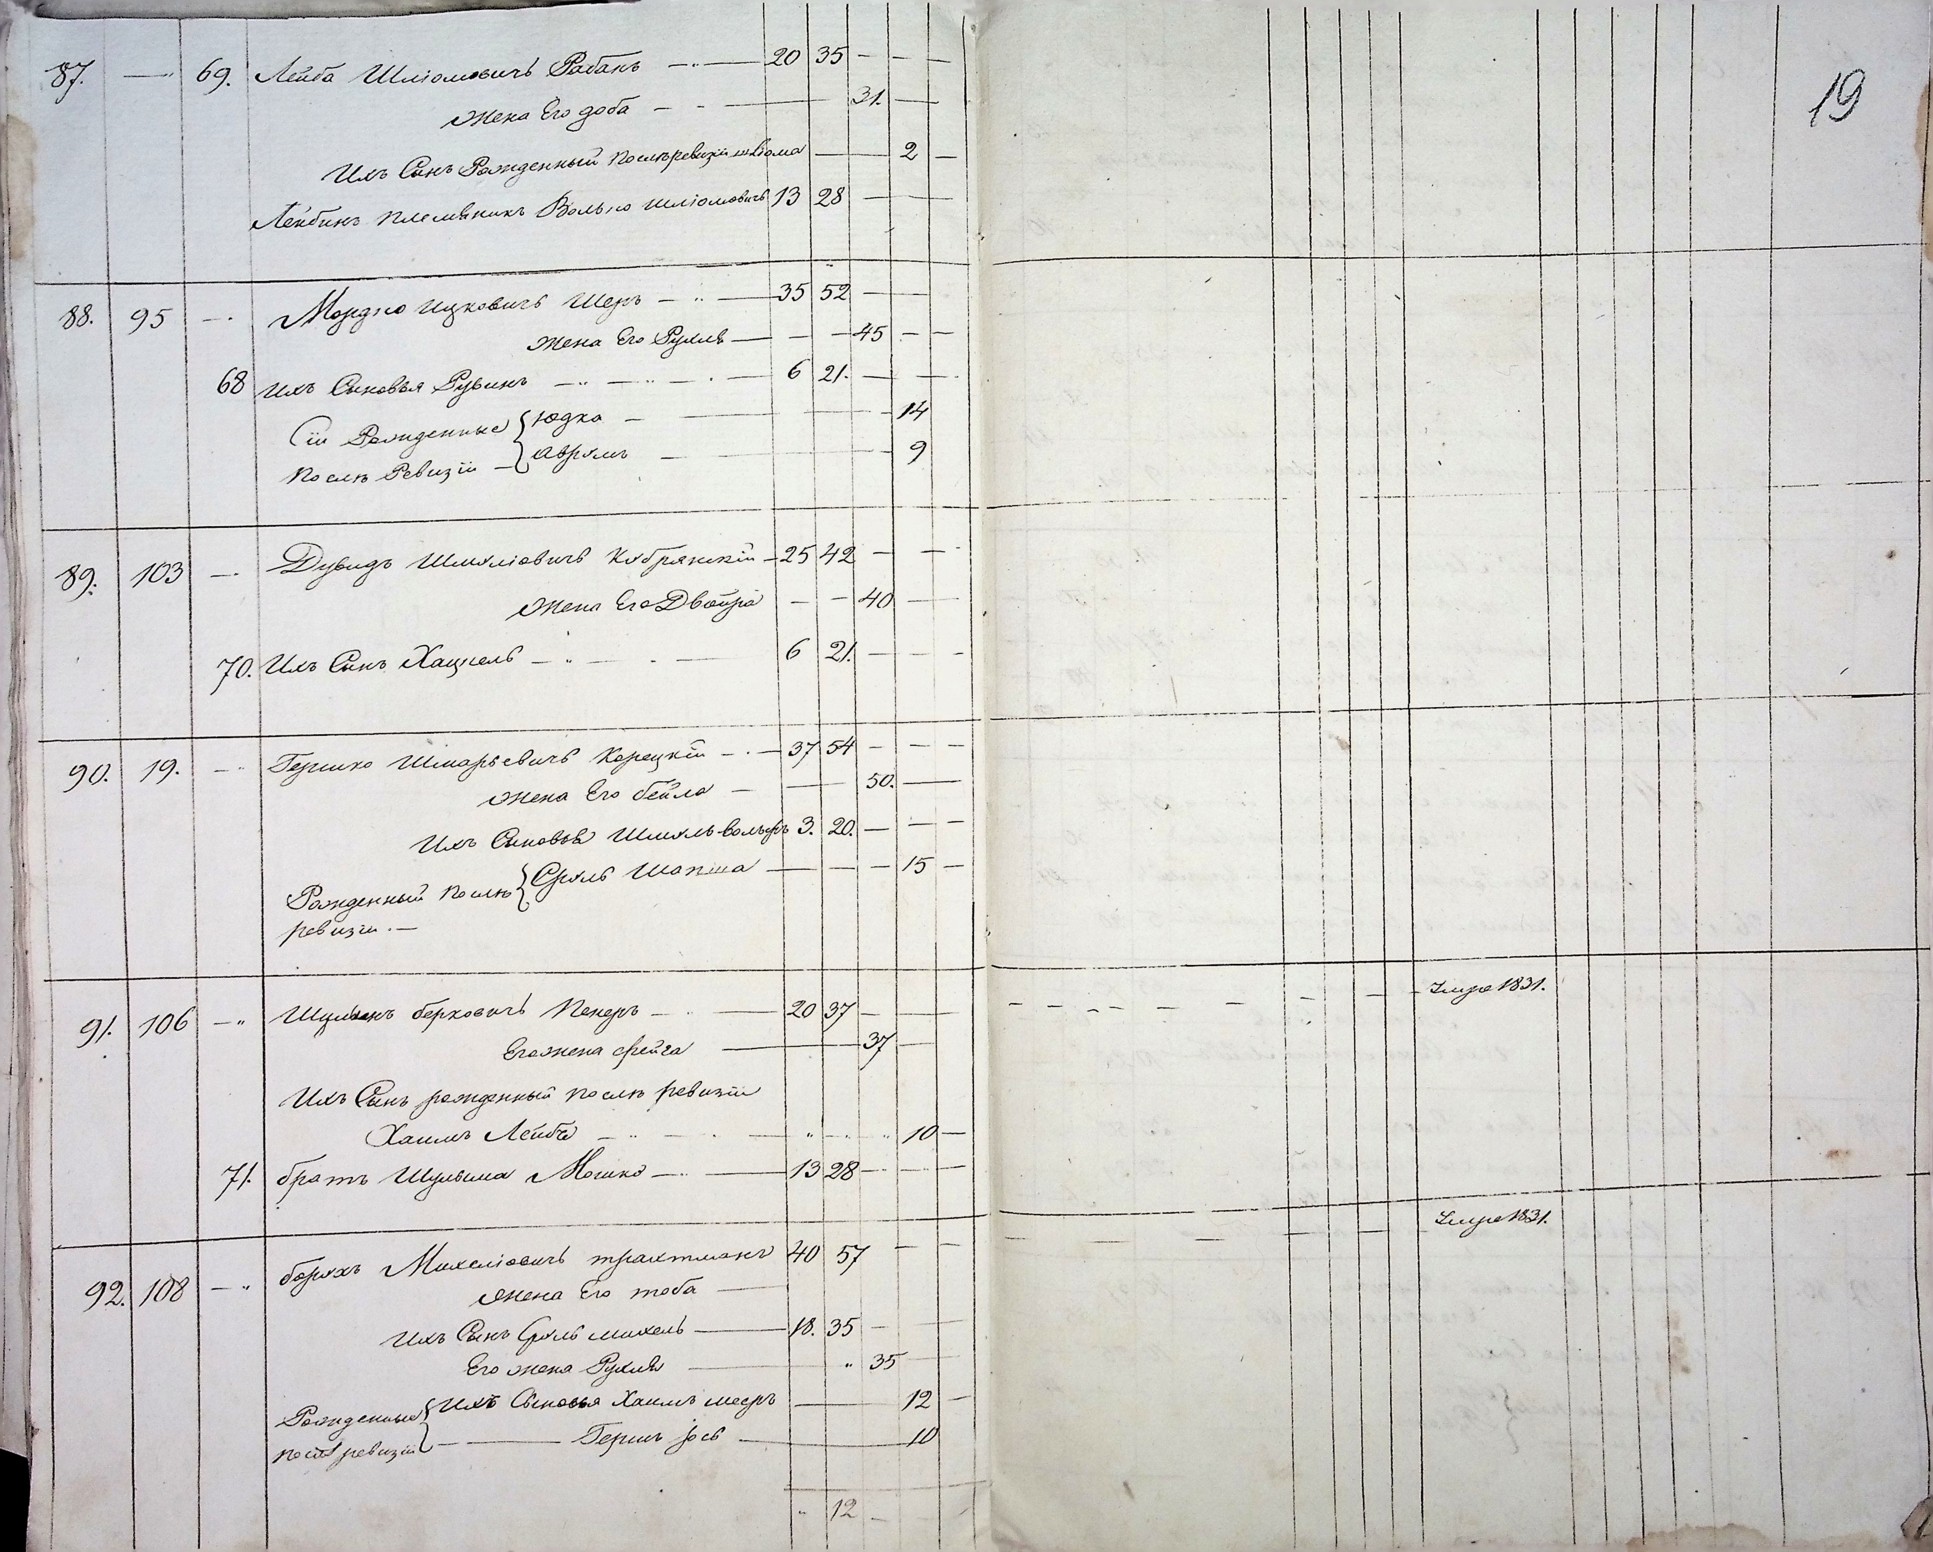 87. — 69. Лейба Шліомовичъ Рабанъ — 20 35 — — —
Жена Его доба — — 31. —
Ихъ Сынъ Рожденный послѣ ревизіи шліома — 2 —
Лейбинъ племѣникъ Волько Шліомовичъ 13 28 — —
19
88. 95 — Мордко Ицковичъ Шеръ — 35 52 — —
Жена Его Рухля — — — 45 — —
68 Ихъ Сыновья Рувинъ — 6 21. — —
Сіи Рожденные { Юдка — — 14
Послѣ Ревизіи — { Аврумъ — — 9
89. 103 — Дувидъ Шмуліовичъ Кобрянскій — 25 42 — —
Жена Его Двойра — — 40 —
70. Ихъ Сынъ Хацкель — 6 21. — — —
90. 19. — Гершко Шмарьевичъ Корецкій — 37 54 — — —
Жена Его бейла — — 50. —
Ихъ Сыновья Шмуль-вольфъ 3. 20. — — —
Рожденный послѣ { Сруль Шапша — — — 15 —
ревизіи. —
91. 106 — Шулимъ берковичъ Пекеръ — 20 37 — —
Умре 1831.
Его жена фейга — 37 —
Ихъ Сынъ рожденный послѣ ревизіи
Хаимъ Лейба — 10 —
71. братъ Шулима Мошко — 13 28 — — —
92. 108 — борухъ Михеліовичъ трахтманъ 40 57 — —
Умре 1831.
Жена Его тоба —
Ихъ Сынъ Сруль михель — 18. 35 — —
Его жена Рухля — 35 —
Рожденные { Ихъ Сыновья Хаимъ мееръ — 12 —
послѣ ревизіи { — Гершъ Іось — 10
12 —